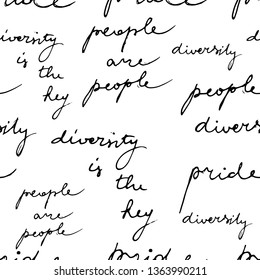 diversity
is
the
key
people
are
people
diversity
people
diversity
diversity
is
the
key
pride
people
are
people
diversity
pride
www.shutterstock.com · 1363990211